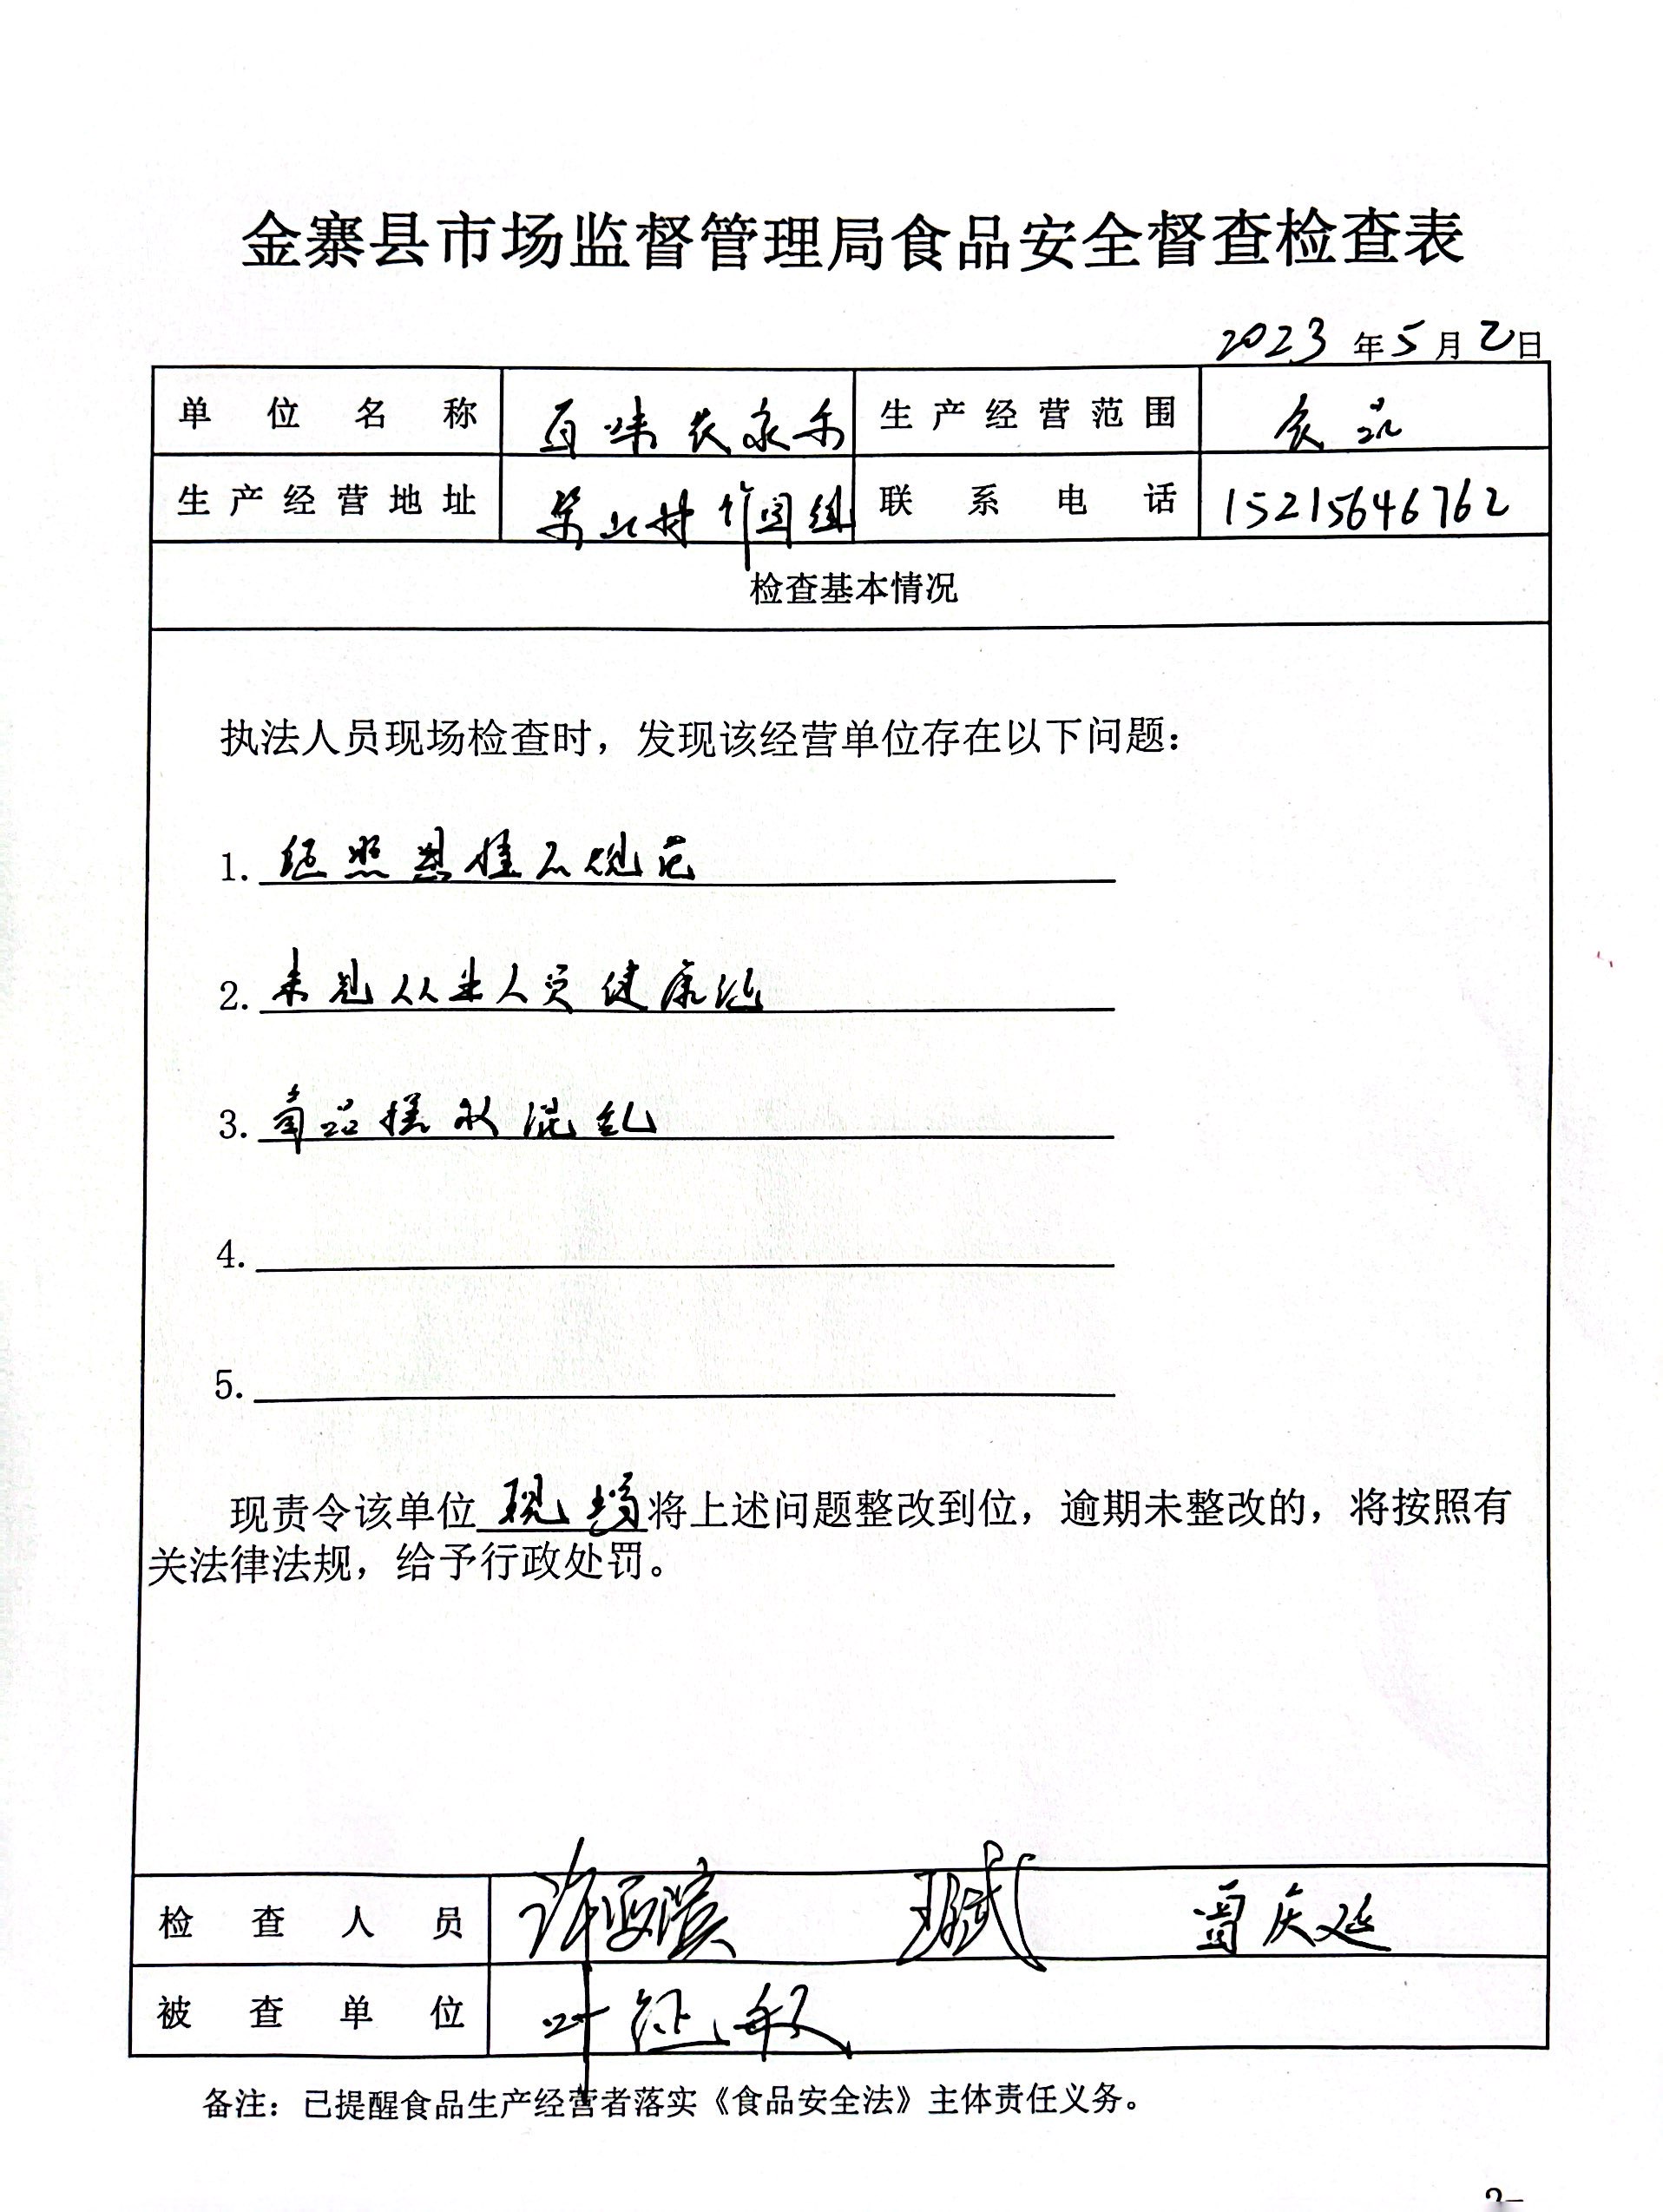 金寨县市场监督管理局食品安全督查检查表
2023年5月2日
单位名称 百味农家乐 生产经营范围 食品
生产经营地址 村 组 联系电话 15215646762
检查基本情况
执法人员现场检查时，发现该经营单位存在以下问题：
1. 证照悬挂不规范
2. 未见从业人员健康证
3. 商品摆放混乱
4.
5.
现责令该单位现场将上述问题整改到位，逾期未整改的，将按照有
关法律法规，给予行政处罚。
检查人员 许
被查单位 叶
备注：已提醒食品生产经营者落实《食品安全法》主体责任义务。